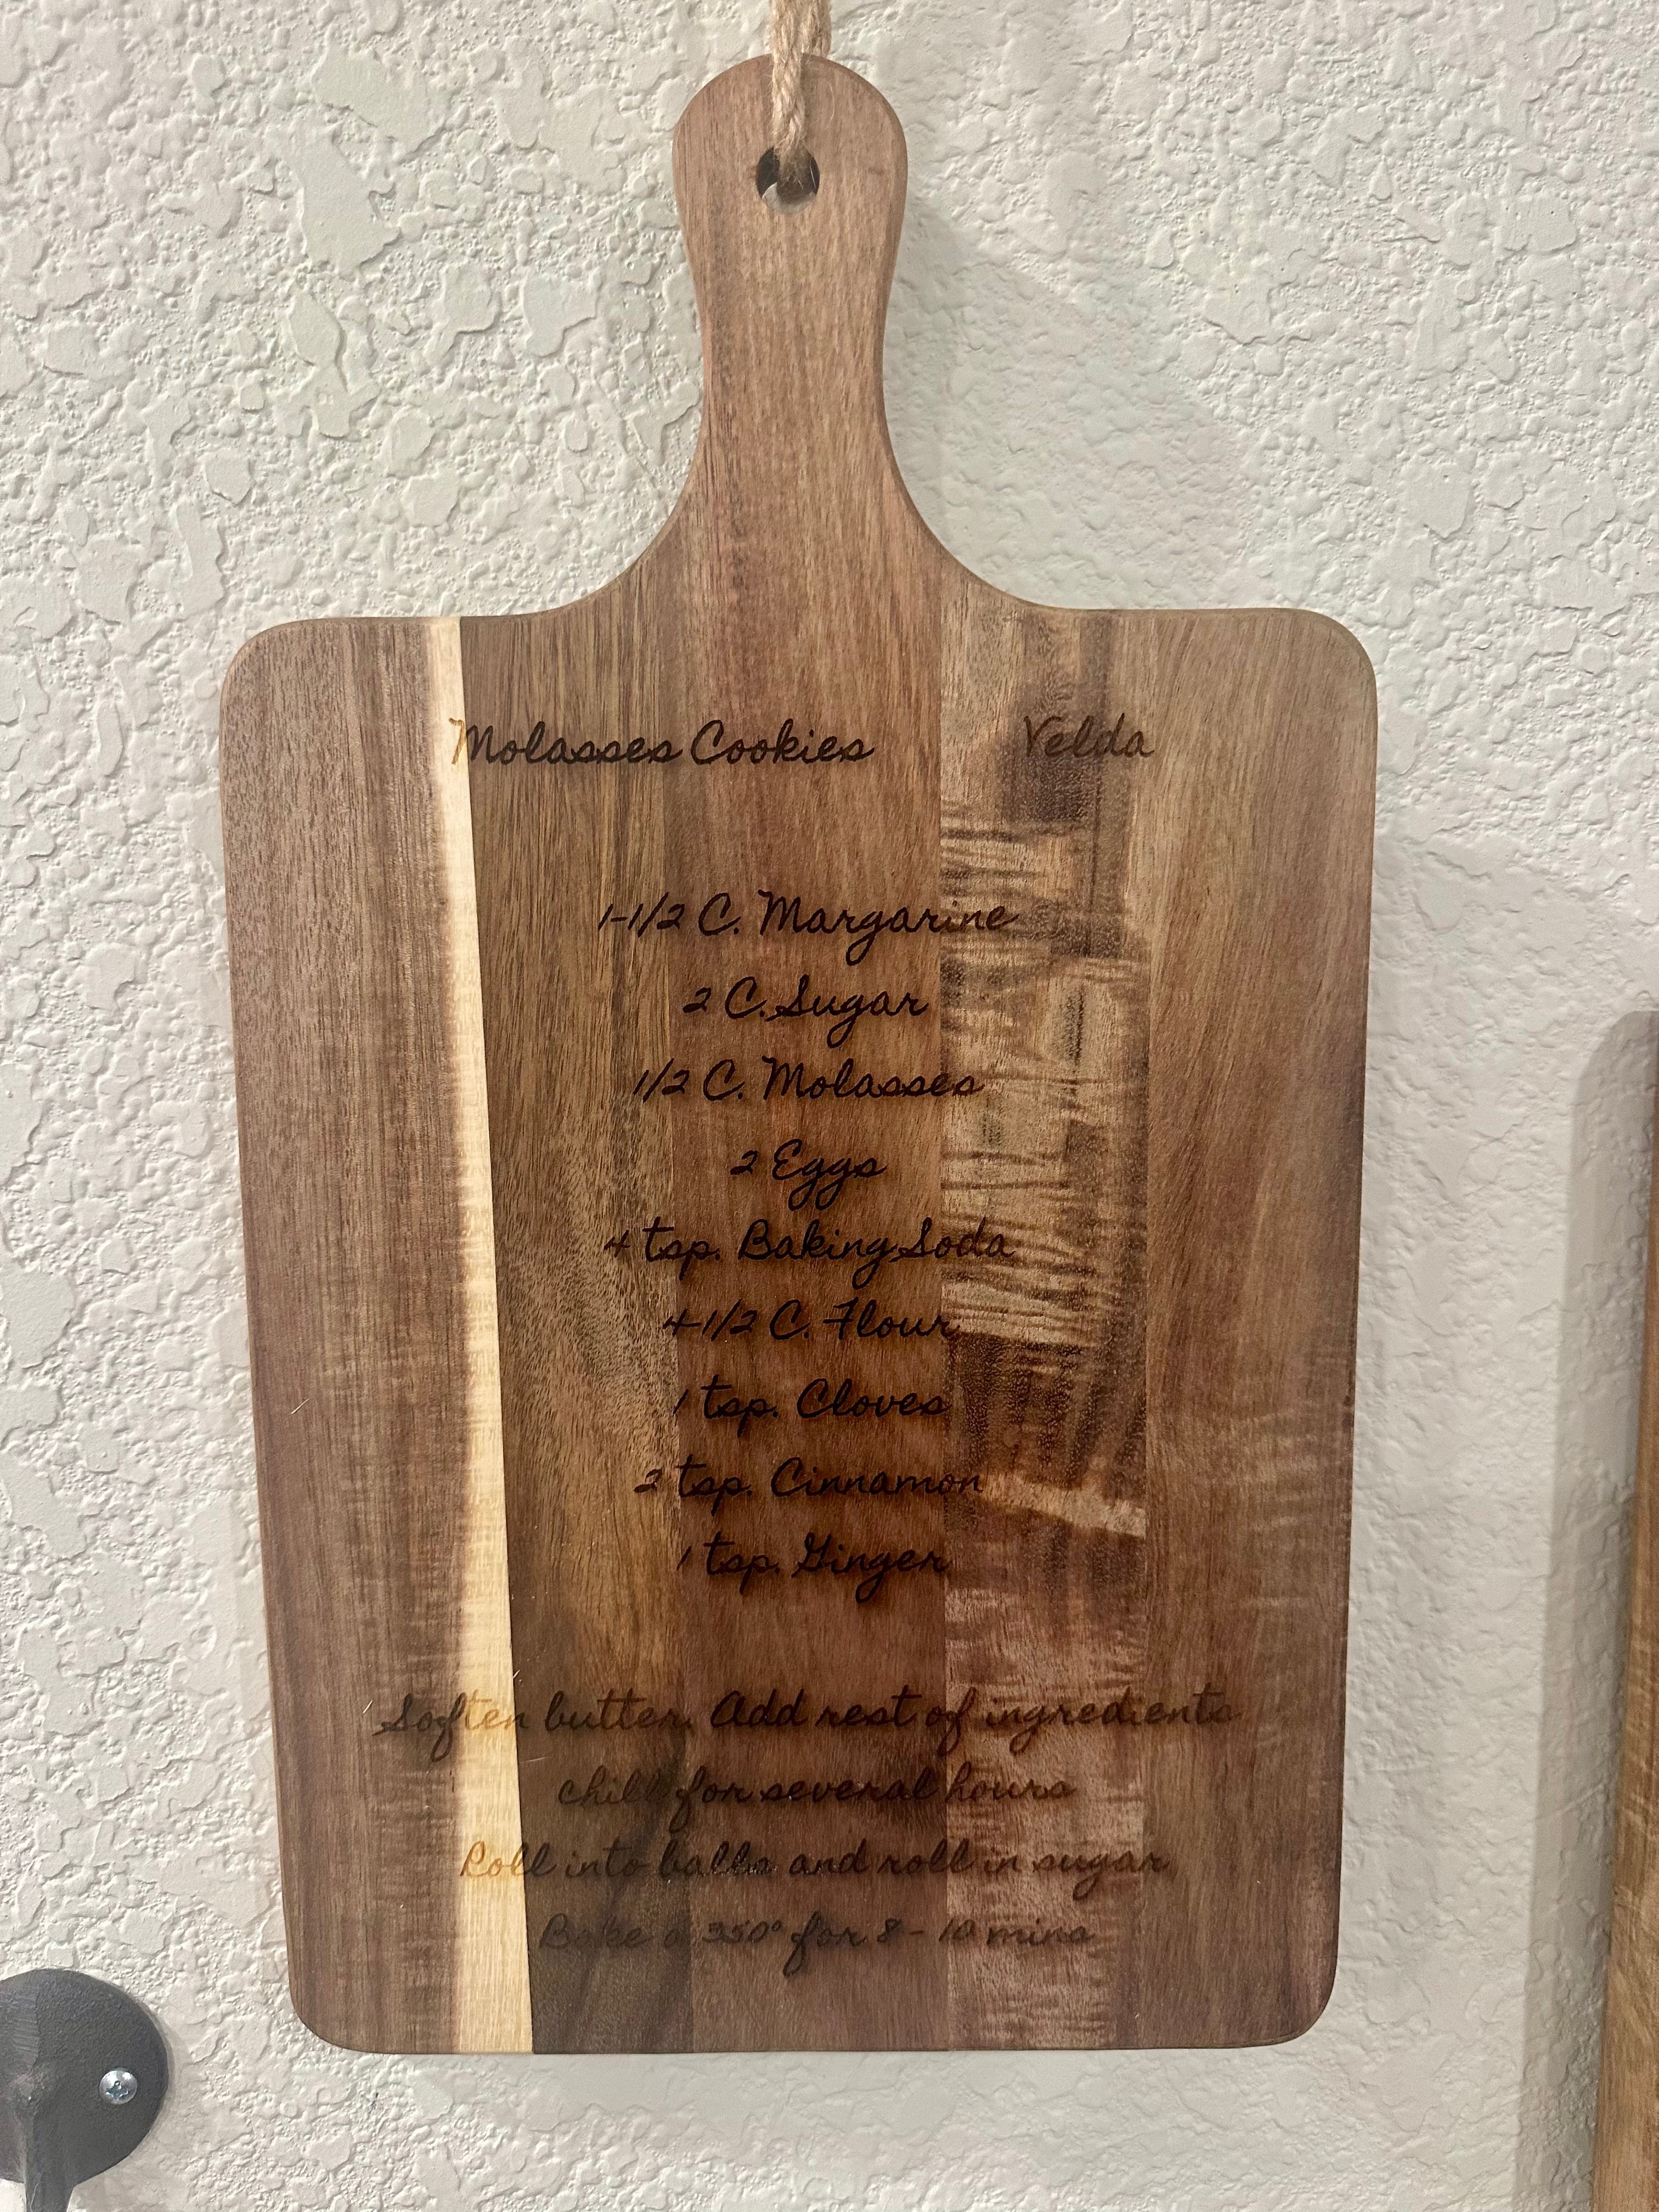 Molasses Cookies Velda
1-1/2 C. Margarine
2 C. Sugar
1/2 C. Molasses
2 Eggs
4 tsp. Baking Soda
4-1/2 C. Flour
1 tsp. Cloves
2 tsp. Cinnamon
1 tsp. Ginger
Soften butter. Add rest of ingredients
chill for several hours
Roll into balls and roll in sugar
Bake @ 350° for 8 - 10 mins